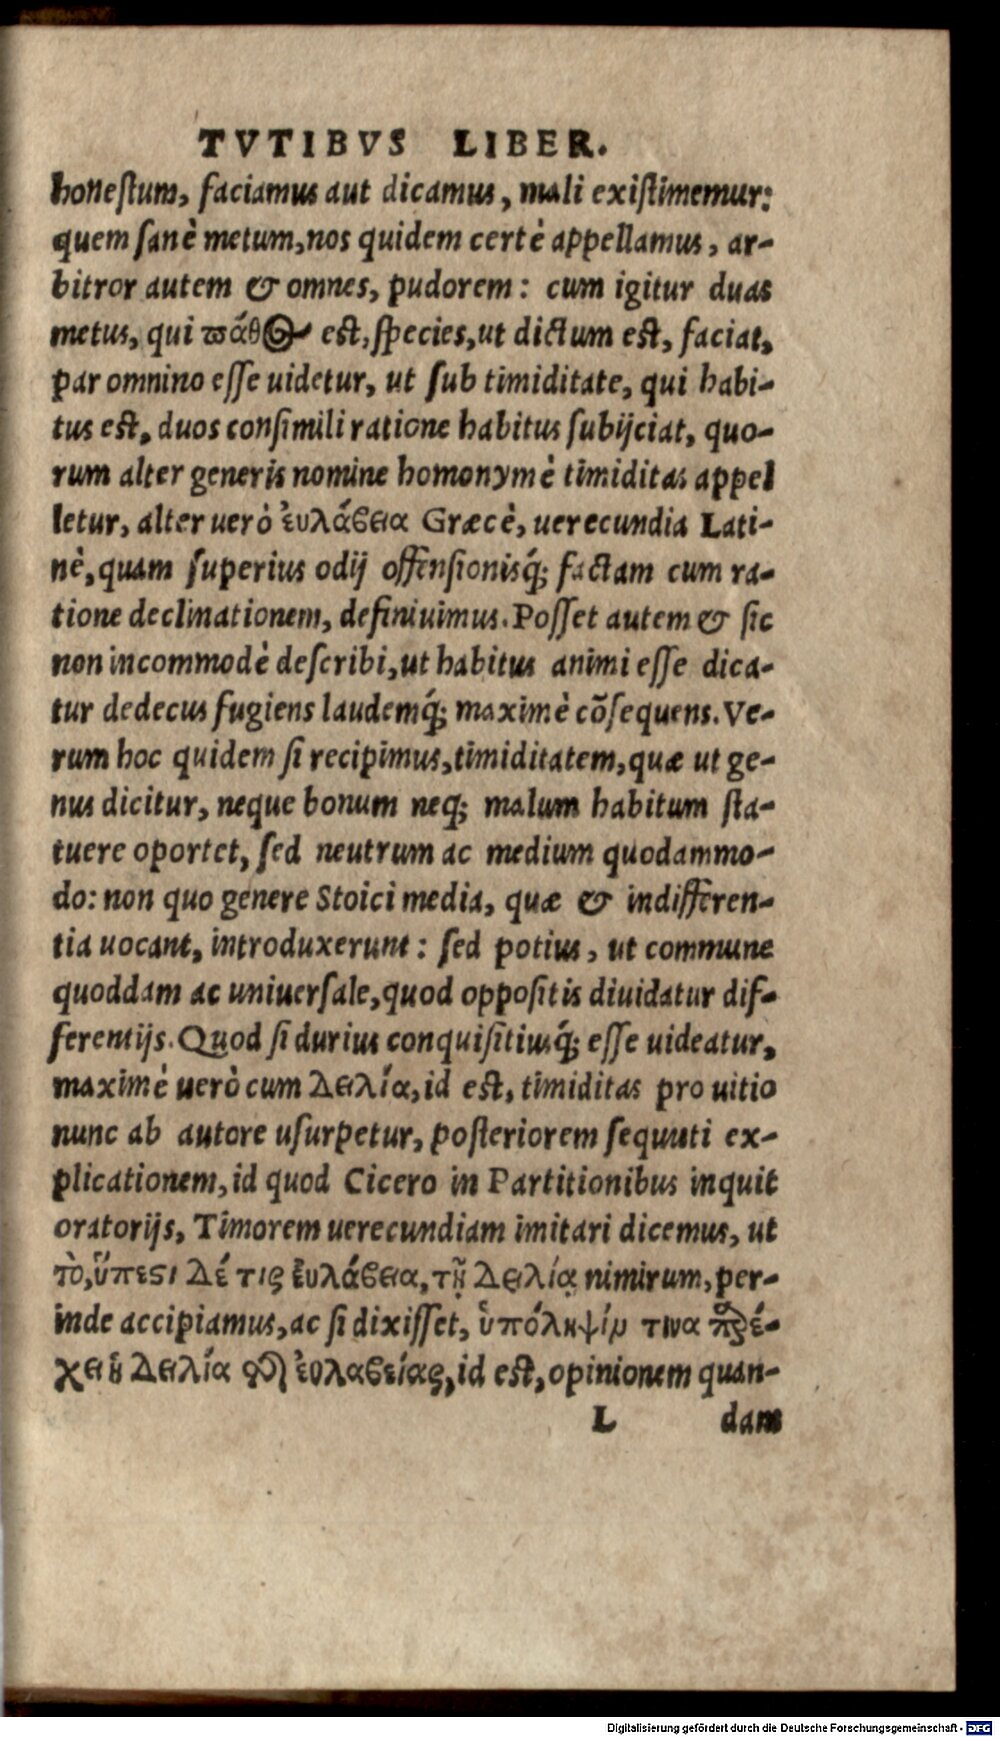 TVTIBVS LIBER.
honestum, faciamus aut dicamus, mali existimemur:
quem sanè metum, nos quidem certè appellamus, ar-
bitror autem & omnes, pudorem: cum igitur duas
metus, qui πάθος est, species, ut dictum est, faciat,
par omnino esse uidetur, ut sub timiditate, qui habi-
tus est, duos consimili ratione habitus subijciat, quo-
rum alter generis nomine homonymè timiditas appel
letur, alter uerò ἐυλάβεια Græcè, uerecundia Lati-
nè, quam superius odij offensionisq́; factam cum ra-
tione declinationem, definiuimus. Posset autem & sic
non incommodè describi, ut habitus animi esse dica-
tur dedecus fugiens laudemq́; maximè cõsequens. Ve-
rum hoc quidem si recipimus, timiditatem, quæ ut ge-
nus dicitur, neque bonum neq; malum habitum sta-
tuere oportet, sed neutrum ac medium quodammo-
do: non quo genere Stoici media, quæ & indifferen-
tia uocant, introduxerunt: sed potius, ut commune
quoddam ac uniuersale, quod oppositis diuidatur dif-
ferentijs. Quod si durius conquisitiusq́; esse uideatur,
maximè uerò cum Δειλία, id est, timiditas pro uitio
nunc ab autore usurpetur, posteriorem sequuti ex-
plicationem, id quod Cicero in Partitionibus inquit
oratorijs, Timorem uerecundiam imitari dicemus, ut
τὸ, ὕπεστι Δέ τις ἐυλάβεια, τῇ Δειλίᾳ nimirum, per-
inde accipiamus, ac si dixisset, ὑπόληψίν τινα παρέ-
χει ἡ Δειλία τῆς ἐυλαβείας, id est, opinionem quan-
L dam
Digitalisierung gefördert durch die Deutsche Forschungsgemeinschaft - DFG